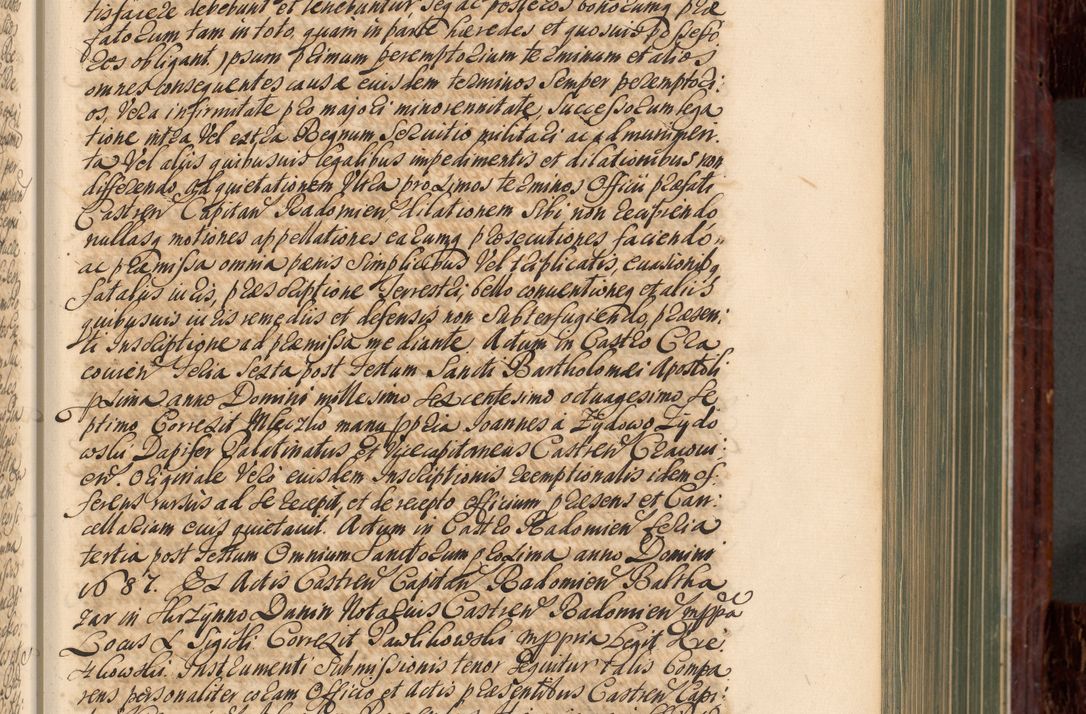 tisfacere debebunt et tenebuntur se, ac posteros bonorumq prae
fatorum tam in toto, quam in parte haeredes et quosuis possesso
res obligant. Ipsum primum peremptorium terminum et alios
omnes consequentes causae eiusdem terminos semper peremptori:
os, vera infirmitate pro majori minorennitate, successorum lega
tione intra vel extra Regnum servitio militari ac ad munimen
ta vel alijs quibusuis legalibus impedimentis et dilationibus non
differendo, ad quietationem ultra proximos terminos Officii praefati
Castren Capitan Radomien dilationem sibi non recipiendo
nullasq motiones appellationes earumq prosecutiones faciendo,
ac praemissa omnia paenis simplicibus vel triplicatis, evasionibq
fatalijs iuris, praescriptione terrestri, bello conventioneq et alijs
quibusuis iuris remediis et defensis non subterfugiendo, praesen:
ti Inscriptione ad praemissa mediante. Actum in Castro Cra
covien Feria Sexta post Festum Sancti Bartholomaei Apostoli
proxima anno Domini millesimo sexcentesimo octuagesimo se
ptimo. Correxit Mleczko manu ppria Joannes a Zydowo Zydo
wski Dapifer Palatinatus et Vicecapitaneus Castren Cracovi:
en. Originale vero eiusdem Inscriptionis reemptionalis idem of:
ferens rursus ad se recepit, et de recepto officium praesens et Can:
cellariam eius quietavit. Actum in Castro Radomien Feria
tertia post Festum Omnium Sanctorum proxima anno Domini
1687. Ex Actis Castren Capitan Radomien Baltha
zar in Skrzynno Dunin Notarius Castren Radomien mppa
Locus L. Sigilli Correxit Pawlikowski mppria Legit Kie
łkowski. Instrumenti Submissionis tenor sequitur talis Compa
rens personaliter coram Officio et Actis praesentibus Castren Capi: